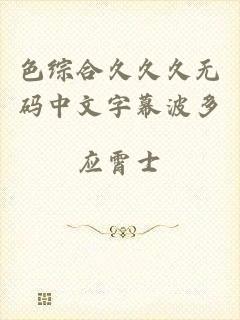 色综合久久久无
码中文字幕波多
应霄士